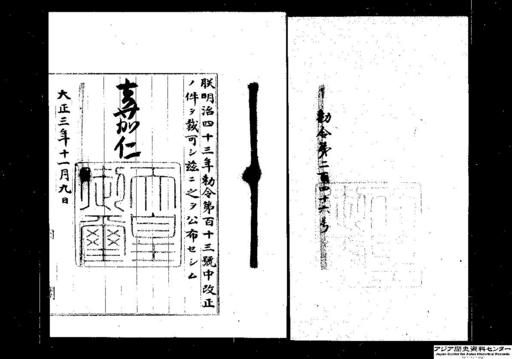 勅令第二百四十六号
朕明治四十三年勅令第百十三號中改正
ノ件ヲ裁可シ茲ニ之ヲ公布セシム
嘉仁
天皇御璽
大正三年十一月九日
アジア歴史資料センター
Japan Center for Asian Historical Records